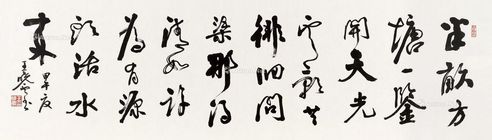 半畝方
塘一鑒
開天光
雲影共
徘徊問
渠那得
清如許
為有源
頭活水
來